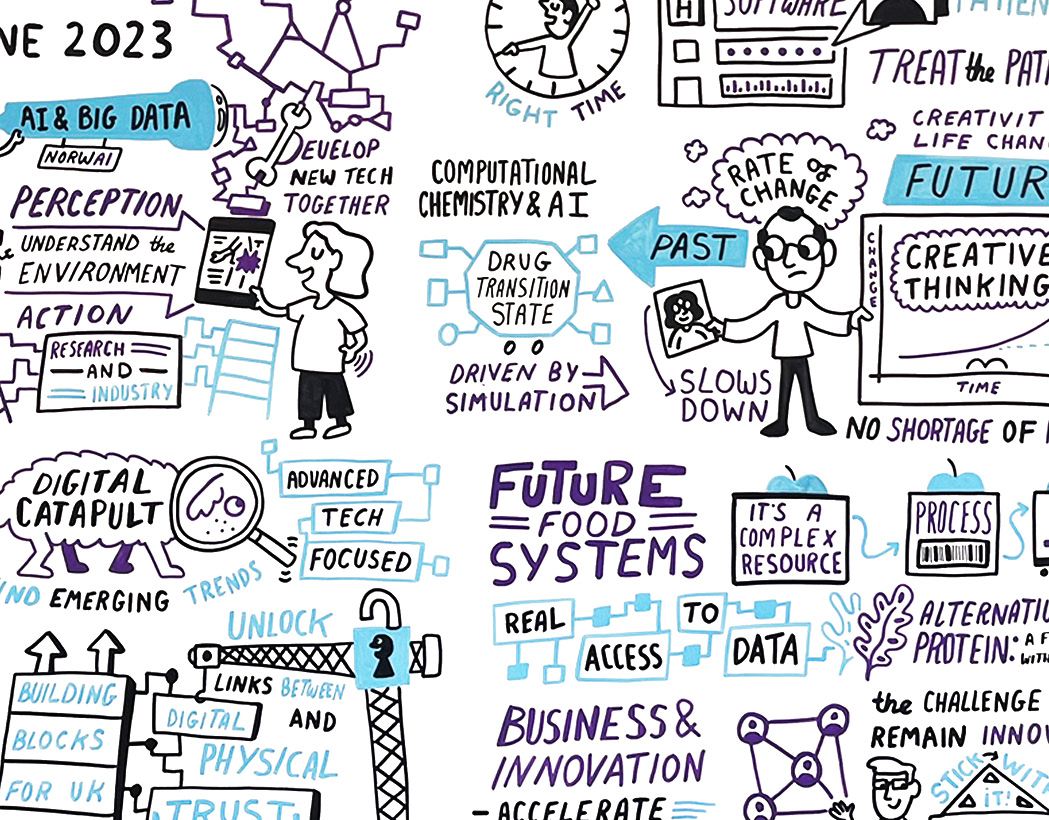 NE 2023
AI & BIG DATA
NORWAI
DEVELOP
NEW TECH
TOGETHER
PERCEPTION
UNDERSTAND the
ENVIRONMENT
ACTION
RESEARCH
AND
INDUSTRY
RIGHT TIME
H SOFTWARE
PATIEN
TREAT the PATI
CREATIVIT
LIFE CHAN
FUTUR
COMPUTATIONAL
CHEMISTRY & AI
DRUG
TRANSITION
STATE
DRIVEN BY
SIMULATION
RATE of
CHANGE
PAST
SLOWS
DOWN
CHANGE
CREATIVE
THINKING
TIME
NO SHORTAGE OF
DIGITAL
CATAPULT
ADVANCED
TECH
FOCUSED
IND EMERGING TRENDS
FUTURE
FOOD
SYSTEMS
IT'S A
COMPLEX
RESOURCE
PROCESS
REAL
ACCESS
TO
DATA
ALTERNATIV
PROTEIN: A F
WITH
UNLOCK
LINKS BETWEEN
DIGITAL AND
PHYSICAL
TRUST
BUILDING
BLOCKS
FOR UK
BUSINESS &
INNOVATION
- ACCELERATE
the CHALLENGE
REMAIN INNOV
STICK WITH
IT!